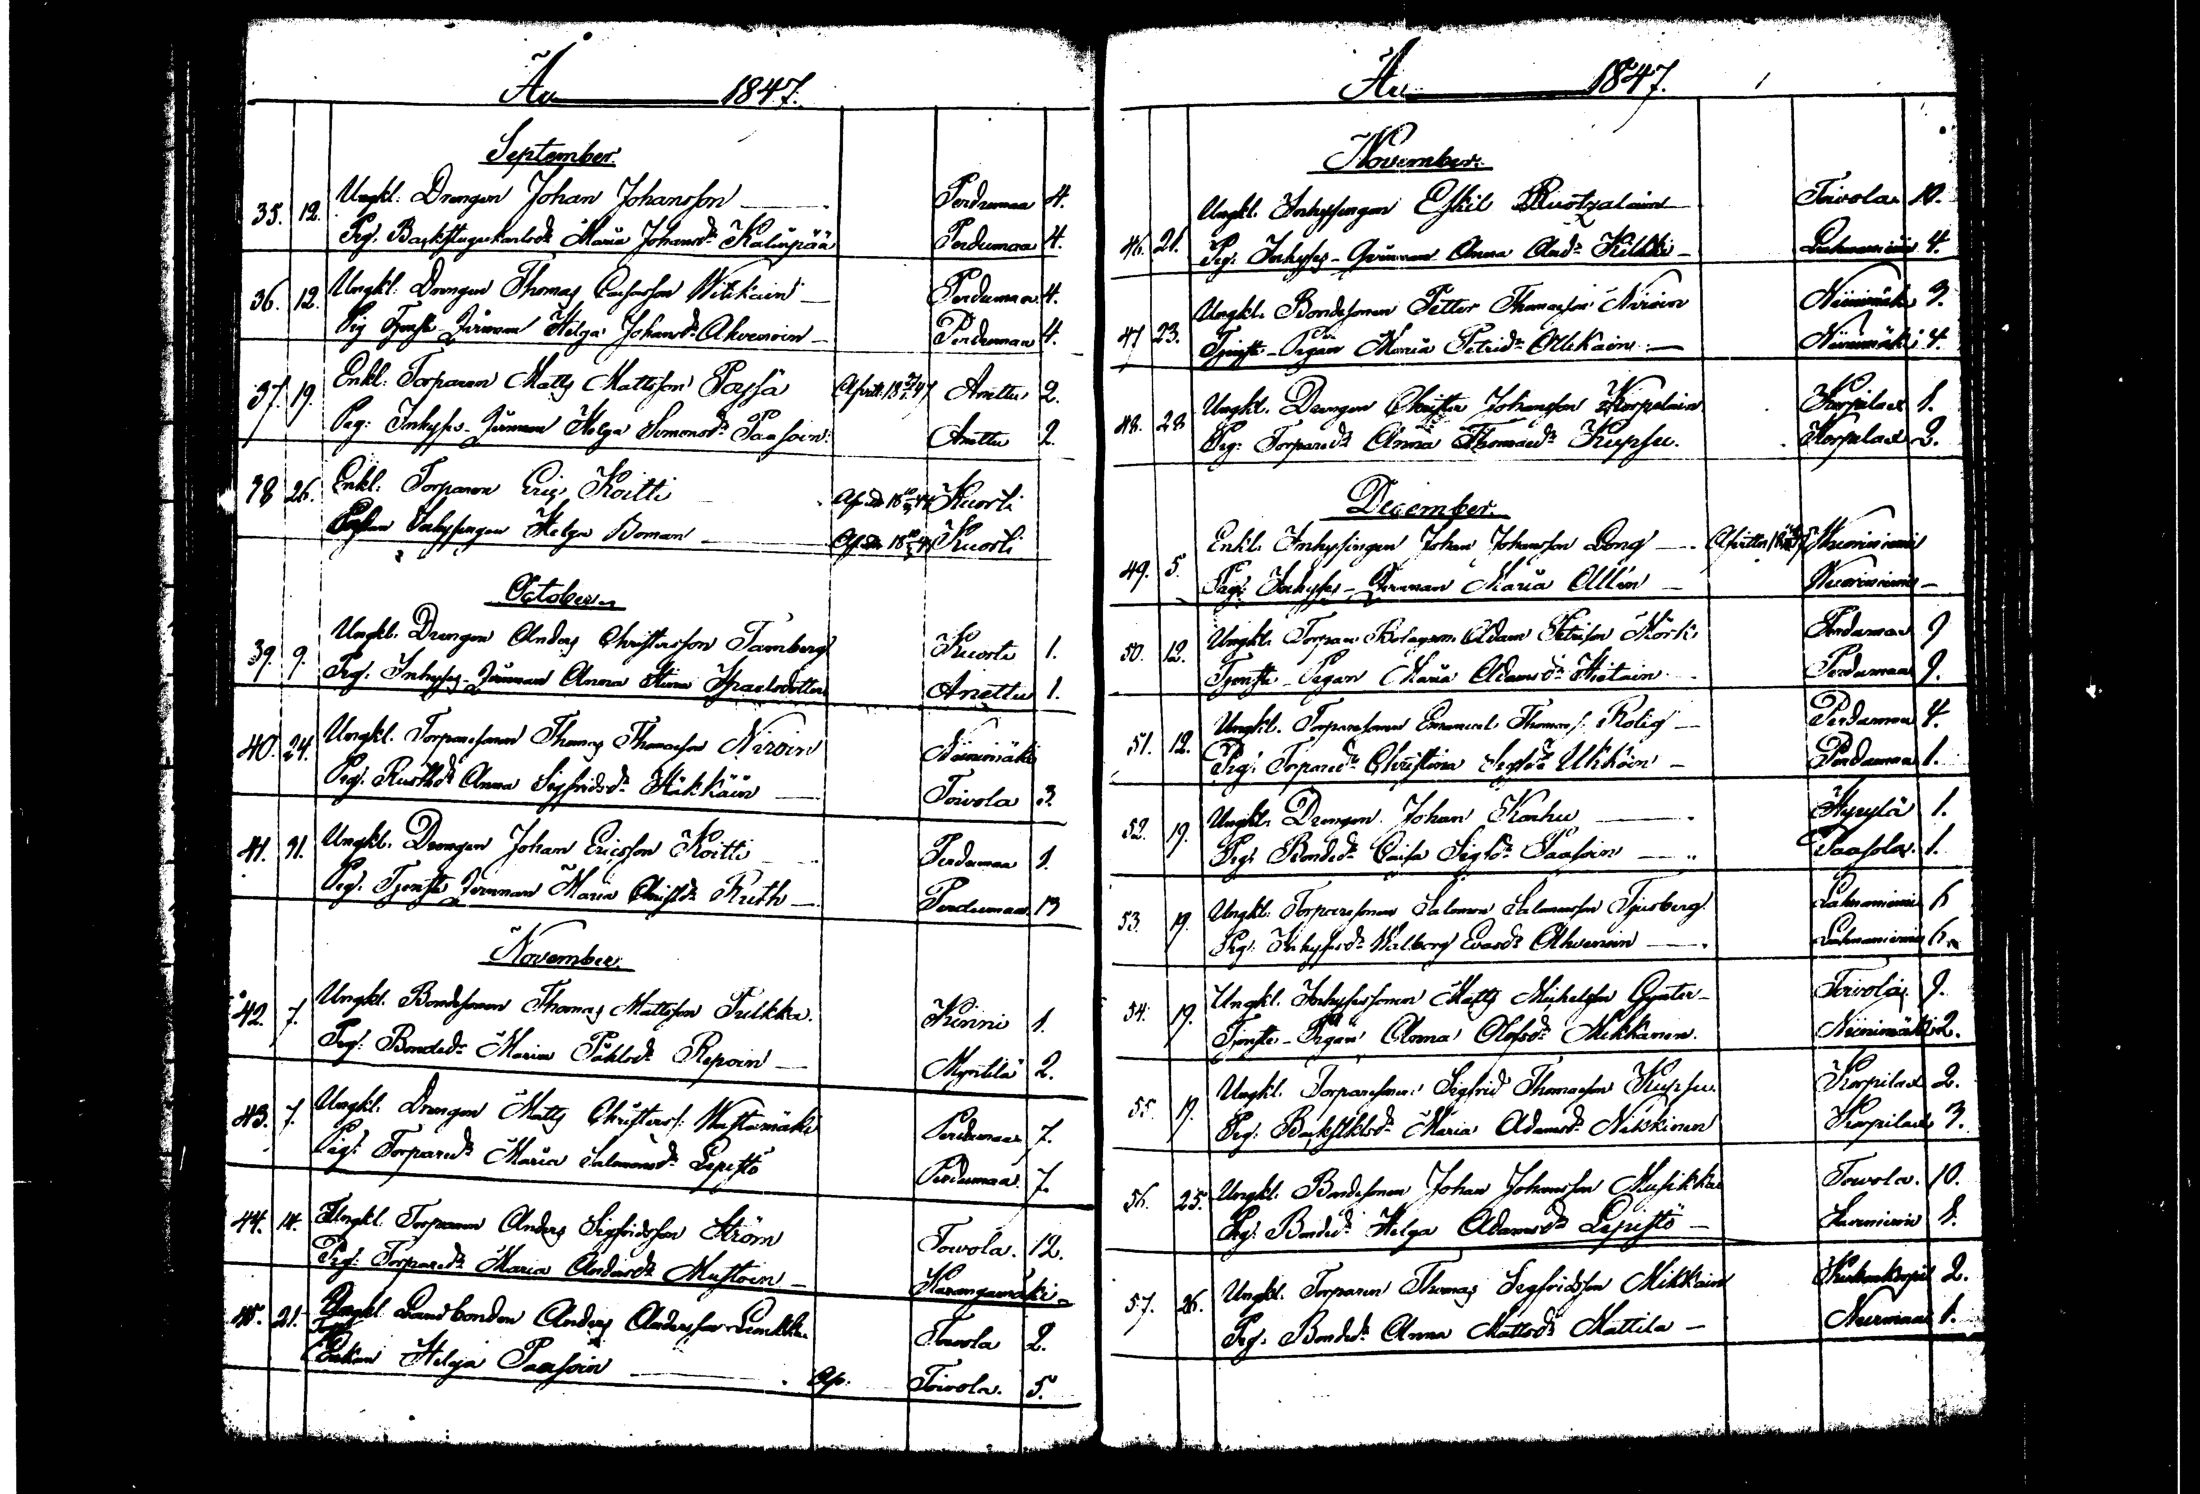 År 1847.
September.
35. 12. Ungkl. Drengen Johan Johansson Perdumaa 4.
Pig. Backstugukarlsdr Maria Johansdr Kalinpää Perdumaa 4.
36. 12. Ungkl. Drengen Thomas Witikain Perdumaa 4.
Pig. Tjenste-Qvinnan Helga Johansdr Ahvenoin Perdumaa 4.
37. 19. Enkl. Torparen Matts Mattsson Anettu 2.
Pig. Inhyses-Qvinnan Helga Simonsdr Paasoin Anettu 2.
38 26. Enkl. Torparen Eric Koitti Kuorti
Enkan Inhysingen Helga Boman Kuorti
October
39. 9. Ungkl. Drengen Anders Christersson Tamberg Kuorti 1.
Pig. Inhyses-Qvinnan Anna Stina Israelsdotter Anettu 1.
40. 24. Ungkl. Torparesonen Thomas Thomasson Niroin Niinimäki
Pig. Rusthdr Anna Sigfridsdr Häkkäin Toivola 3.
41. 31. Ungkl. Drengen Johan Ericsson Koitti Perdumaa 1.
Pig. Tjenste Qvinnan Maria Christdr Ruth Perdumaa 13
November.
42. 7. Ungkl. Bondesonen Thomas Mattsson Pulkka. Kinni 1.
Pig. Bondedr Maria Påhlsdr Repoin Myrttilä 2.
43. 7. Ungkl. Drengen Matts Christers. Mustamäki Perdumaa 7.
Pig. Torparedr Maria Salmonsdr Lepistö Perdumaa 7.
44. 14. Ungkl. Torparen Anders Sigfridsson Ström Toivola. 12.
Pig. Torparedr Maria Andersdr Mustoin Karangamäki
45. 21. Ungkl. Landbonden Anders Andersson Toivola 2.
Enkan Helga Paasoin Toivola. 5.
År 1847.
November.
46. 21. Ungkl. Inhysingen Eskil Ruotzalain Toivola 10.
Pig. Inhyses-Qvinnan Anna Andr Kilkki Lahnaniemi 4.
47 23. Ungkl. Bondesonen Petter Thomasson Niroin Niinimäki 3.
Tjenste-Pigan Maria Petridr Ollikain Niinimäki 4.
48. 28 Ungkl. Drengen Christer Johansson Korpelain Korpilax 1.
Pig. Torparedr Anna Thomasdr Kupsu. Korpilax 2.
December.
49. 5. Enkl. Inhysingen Johan Johansson Long
Pig. Inhyses-Qvinnan Maria Ollin
50. 12. Ungkl. Adam Petersson Mörk Perdumaa 9
Tjenste-Pigan Maria Adamsdr Hietain Perdumaa 9.
51. 12. Ungkl. Torparesonen Emanuel Thomas. Rolig Perdumaa 4.
Pig. Torparedr Christina Ukkoin Perdumaa 1.
52. 19. Ungkl. Drengen Johan Karhu Hyrylä 1.
Pig. Bondedr Caisa Sigfdr Paasoin Paasola. 1.
53. 19. Ungkl. Torparesonen Salomon Salomonsson Tjusberg Lahnaniemi 6
Pig. Inhysesdr Walborg Evasdr Ahvenoin Lahnaniemi 6.
54. 19. Ungkl. Inhysessonen Matts Michelson Toivola. 9.
Tjenste-Pigan Anna Olofsdr Mikkanen. Niinimäki 2.
55. 19. Ungkl. Torparesonen Sigfrid Thomasson Kupsu. Korpilax 2.
Pig. Maria Adamsdr Niskinen Korpilax 3.
56. 25. Ungkl. Bondesonen Johan Johansson Musikka Toivola. 10.
Pig. Bondedr Helga Adamsdr Lepistö
57. 26. Ungkl. Torparen Thomas Sigfridsson Mikkain 2.
Pig. Bondedr Anna Mattsdr Mattila Nurmaa 1.